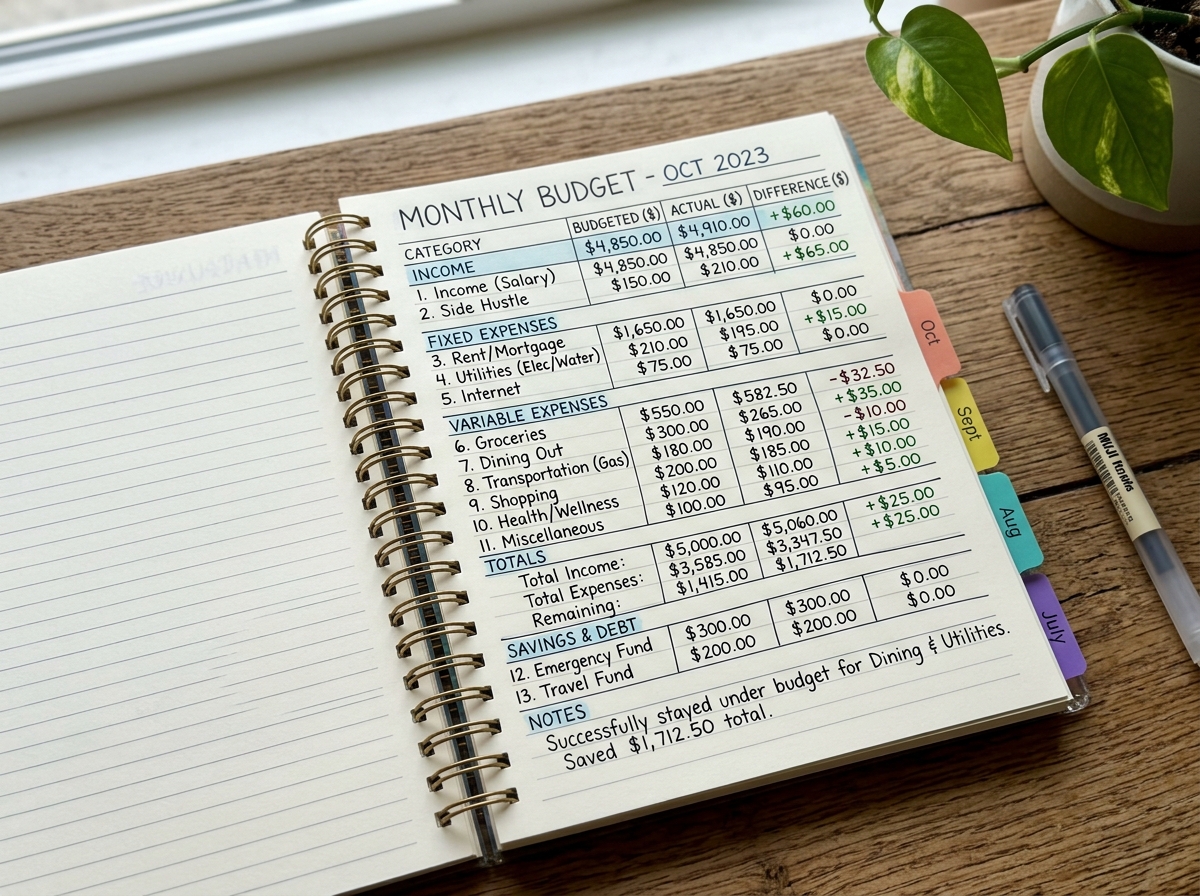 MONTHLY BUDGET - OCT 2023
CATEGORY BUDGETED ($) ACTUAL ($) DIFFERENCE ($)
INCOME $4,850.00 $4,910.00 +$60.00
1. Income (Salary) $4,850.00 $4,850.00 $0.00
2. Side Hustle $150.00 $210.00 +$65.00
FIXED EXPENSES
3. Rent/Mortgage $1,650.00 $1,650.00 $0.00
4. Utilities (Elec/Water) $210.00 $195.00 +$15.00
5. Internet $75.00 $75.00 $0.00
VARIABLE EXPENSES
6. Groceries $550.00 $582.50 -$32.50
7. Dining Out $300.00 $265.00 +$35.00
8. Transportation (Gas) $180.00 $190.00 -$10.00
9. Shopping $200.00 $185.00 +$15.00
10. Health/Wellness $120.00 $110.00 +$10.00
11. Miscellaneous $100.00 $95.00 +$5.00
TOTALS
Total Income: $5,000.00 $5,060.00 +$25.00
Total Expenses: $3,585.00 $3,347.50 +$25.00
Remaining: $1,415.00 $1,712.50
SAVINGS & DEBT
12. Emergency Fund $300.00 $300.00 $0.00
13. Travel Fund $200.00 $200.00 $0.00
NOTES
Successfully stayed under budget for Dining & Utilities.
Saved $1,712.50 total.
Oct
Sept
Aug
July
MUJI